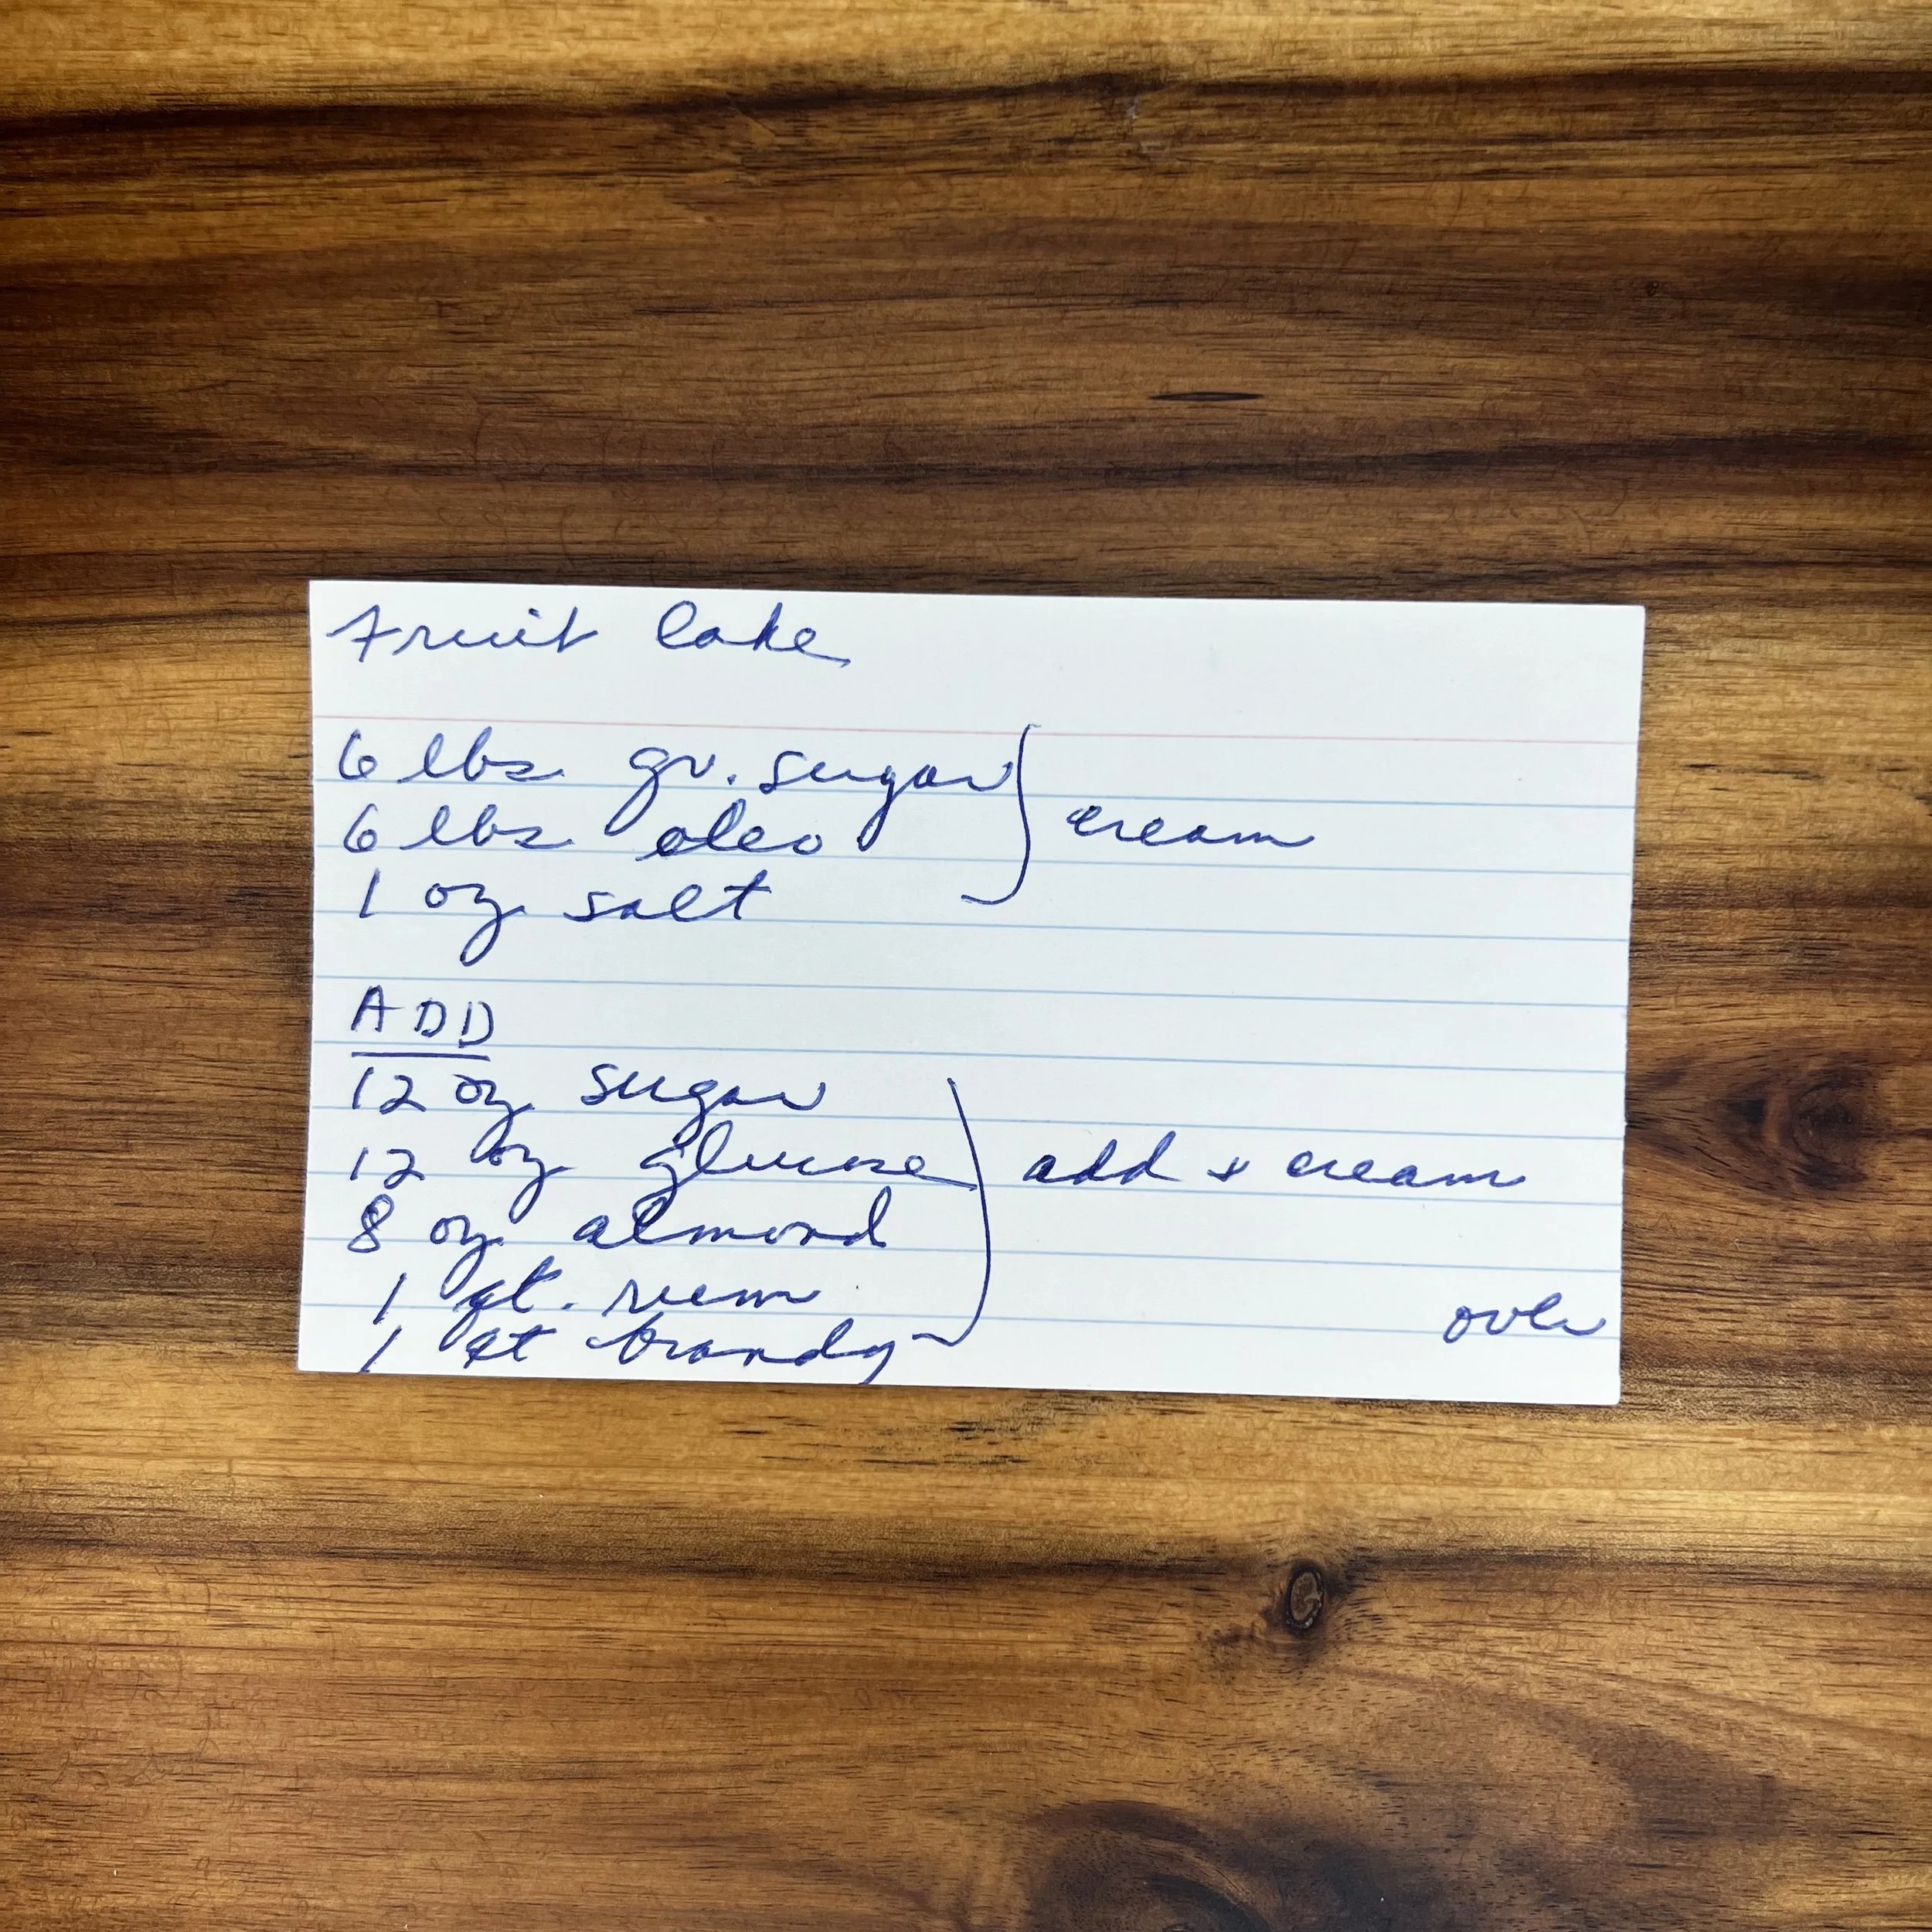 Fruit Cake
6 lbs gr. sugar
6 lbs oleo
1 oz salt
cream
ADD
12 oz sugar
12 oz glucose
8 oz almond
1 qt. rum
1 qt brandy
add + cream
over